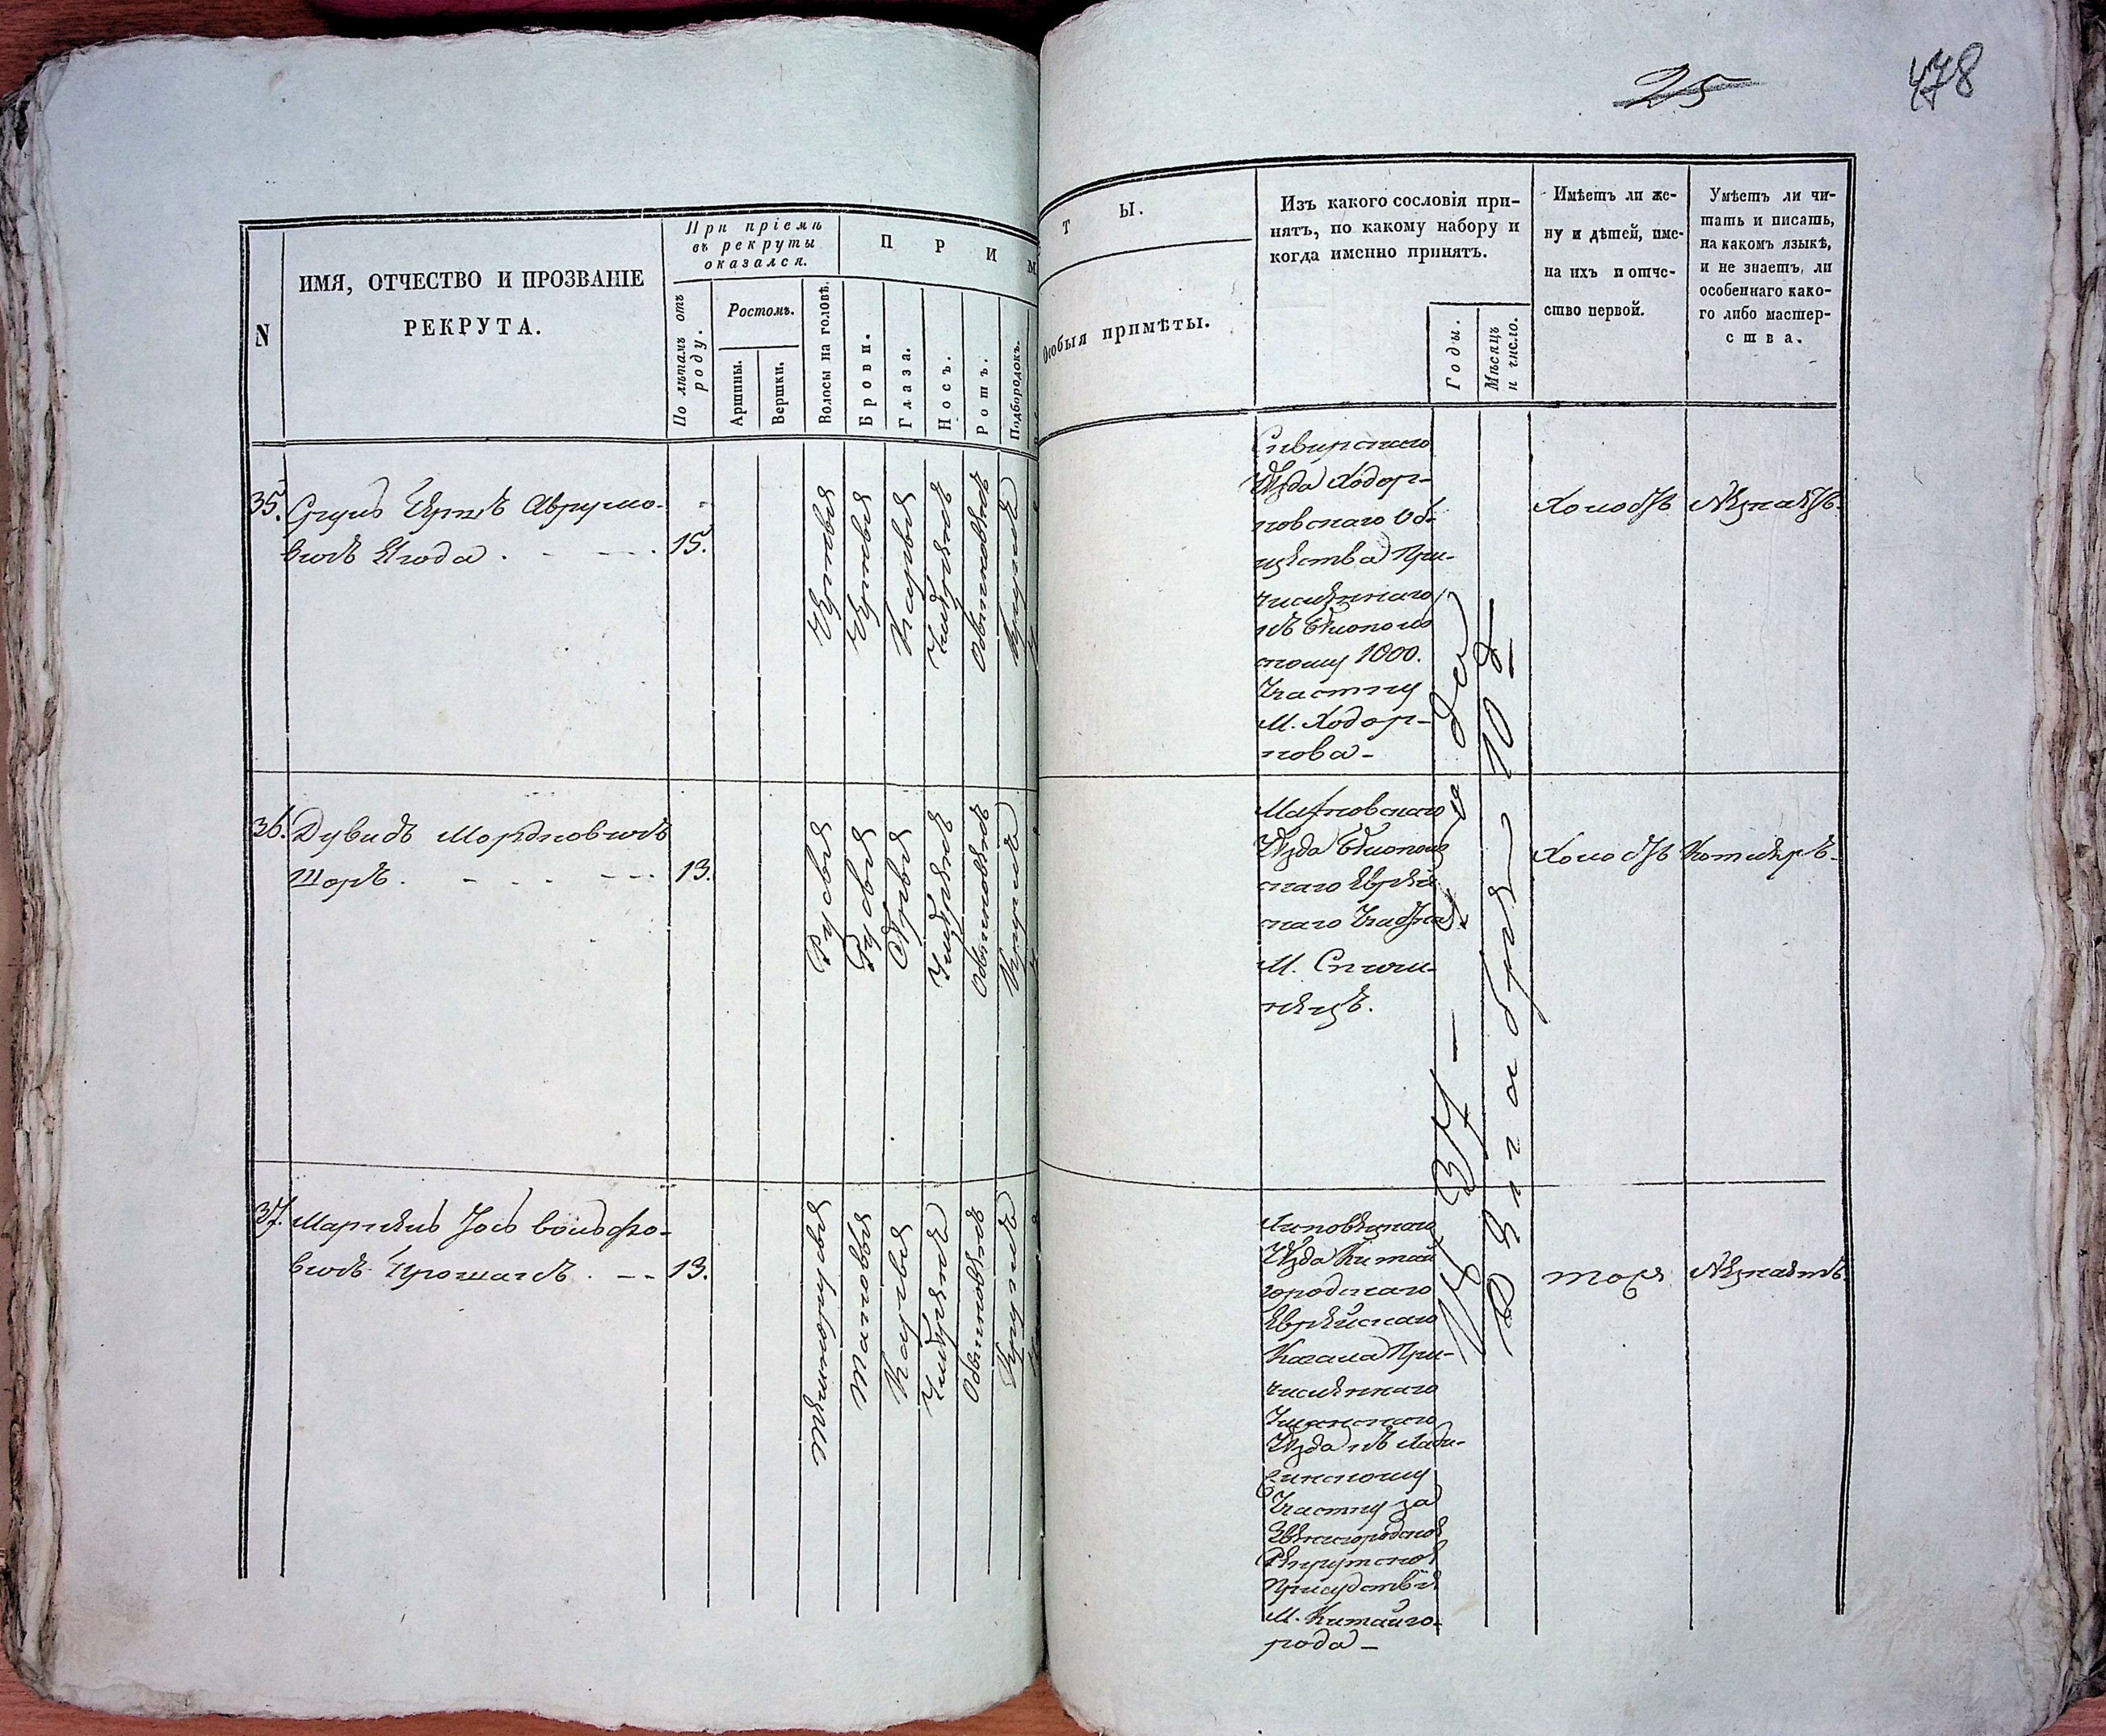 25
478
N
ИМЯ, ОТЧЕСТВО И ПРОЗВАНІЕ
РЕКРУТА.
При пріемѣ
въ рекруты
оказался.
По лѣтамъ отъ
роду.
Ростомъ.
Аршины.
Вершки.
Волосы на головѣ.
П Р И М
Брови.
Глаза.
Носъ.
Ротъ.
Подбородокъ.
Т Ы.
Особыя примѣты.
Изъ какого сословія при-
нятъ, по какому набору и
когда именно принятъ.
Годы.
Мѣсяцъ
и число.
Имѣетъ ли же-
ну и дѣтей, име-
на ихъ и отче-
ство первой.
Умѣетъ ли чи-
тать и писать,
на какомъ языкѣ,
и не знаетъ, ли
особеннаго како-
го либо мастер-
ства.
35.
Аврумо-
вичъ Ягода
15.
Черныя
Черныя
Карыя
Умѣрены
Обыкновенъ
Круглъ
Сквирскаго
Уѣзда Ходор-
ковскаго Об-
щества При-
численнаго
къ Бѣлополь
скому 1000.
Участку
М. Ходор-
кова -
1837 - года
Декабря 10 д
Холостъ
Незнаетъ.
36.
Дувидъ Мордковичъ
Шоръ.
13.
Русыя
Русыя
Сѣрыя
Умѣренъ
Обыкновенъ
Круглъ
Махновскаго
Уѣзда Бѣлополь
скаго Еврей
скаго Участка
М. Спичи-
нецъ.
Холостъ
Котляръ.
37.
Вольфо-
вичъ
13.
Темнорусыя
Таковыя
Карыя
Умѣренъ
Обыкновенъ
Круглъ
Липовецкаго
Уѣзда Китай
городскаго
Еврейскаго
Кагала При-
численнаго
Уманскаго
Уѣзда къ Лады-
жинскому
Участку за
Звенигородской
Рекрутской
Присудствія
М. Китайго-
рода -
тоже
Незнаетъ.